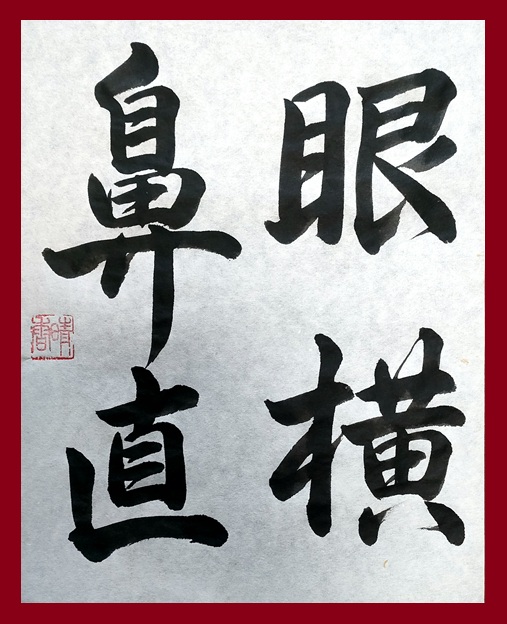 眼横
鼻直